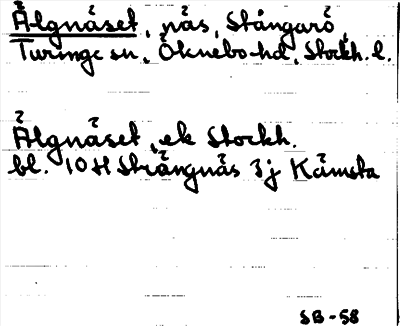 Älgnäset, näs, Stångarö,
Turinge sn, Öknebo hd, Stockh. l.
Älgnäset, ek Stockh.
bl. 10 H Strängnäs 3j Kämsta
SB-58